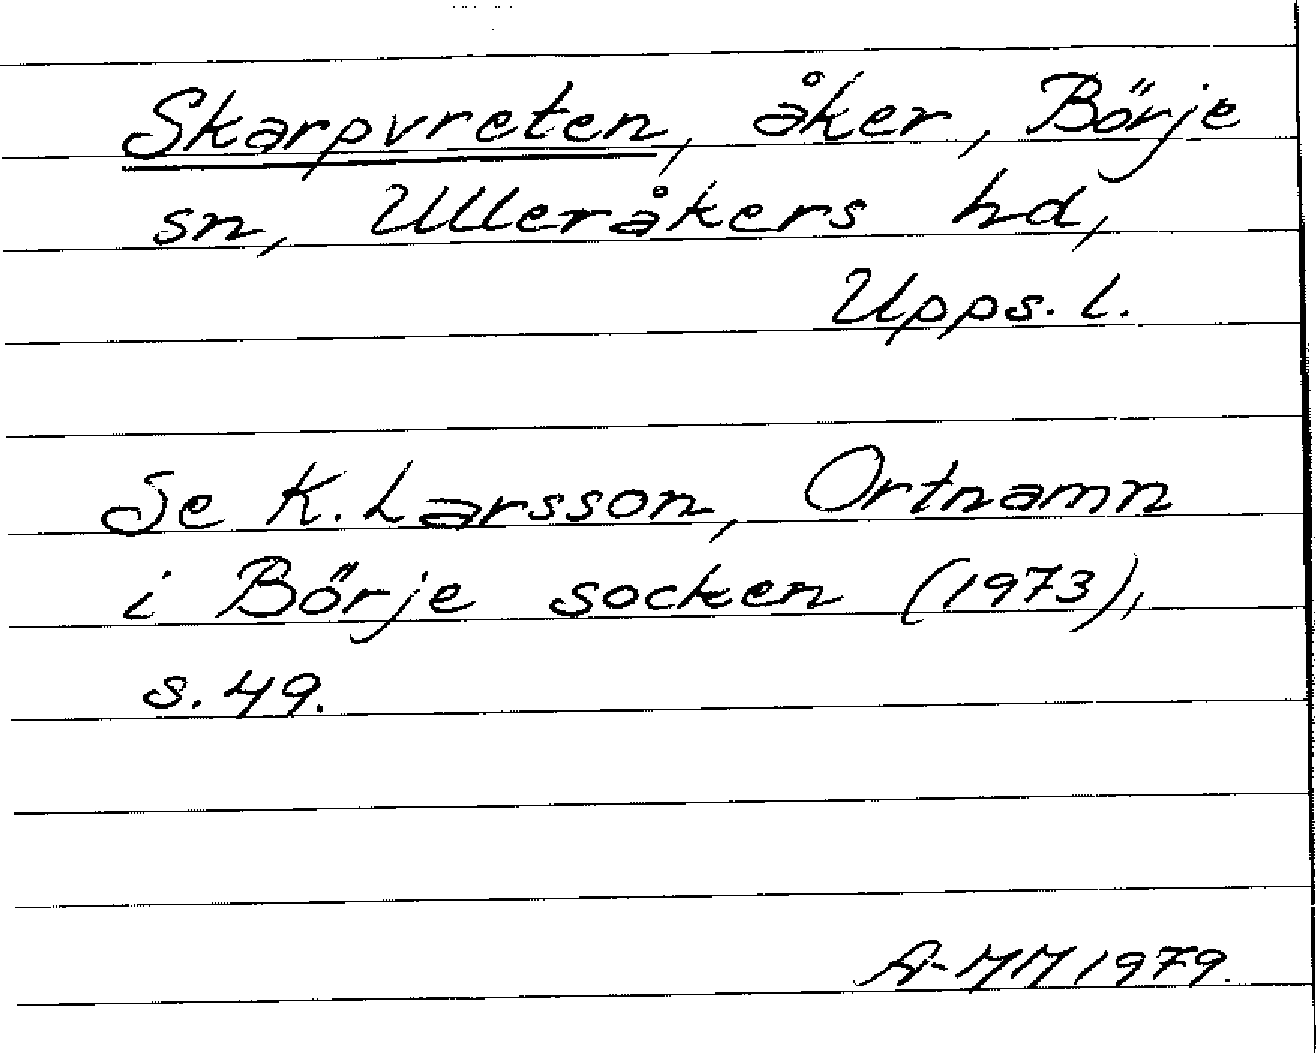 Skarpvreten, åker, Börje
sn, Ulleråkers hd,
Upps. l.
Se K. Larsson, Ortnamn
i Börje socken (1973),
s. 49.
A-MM 1979.